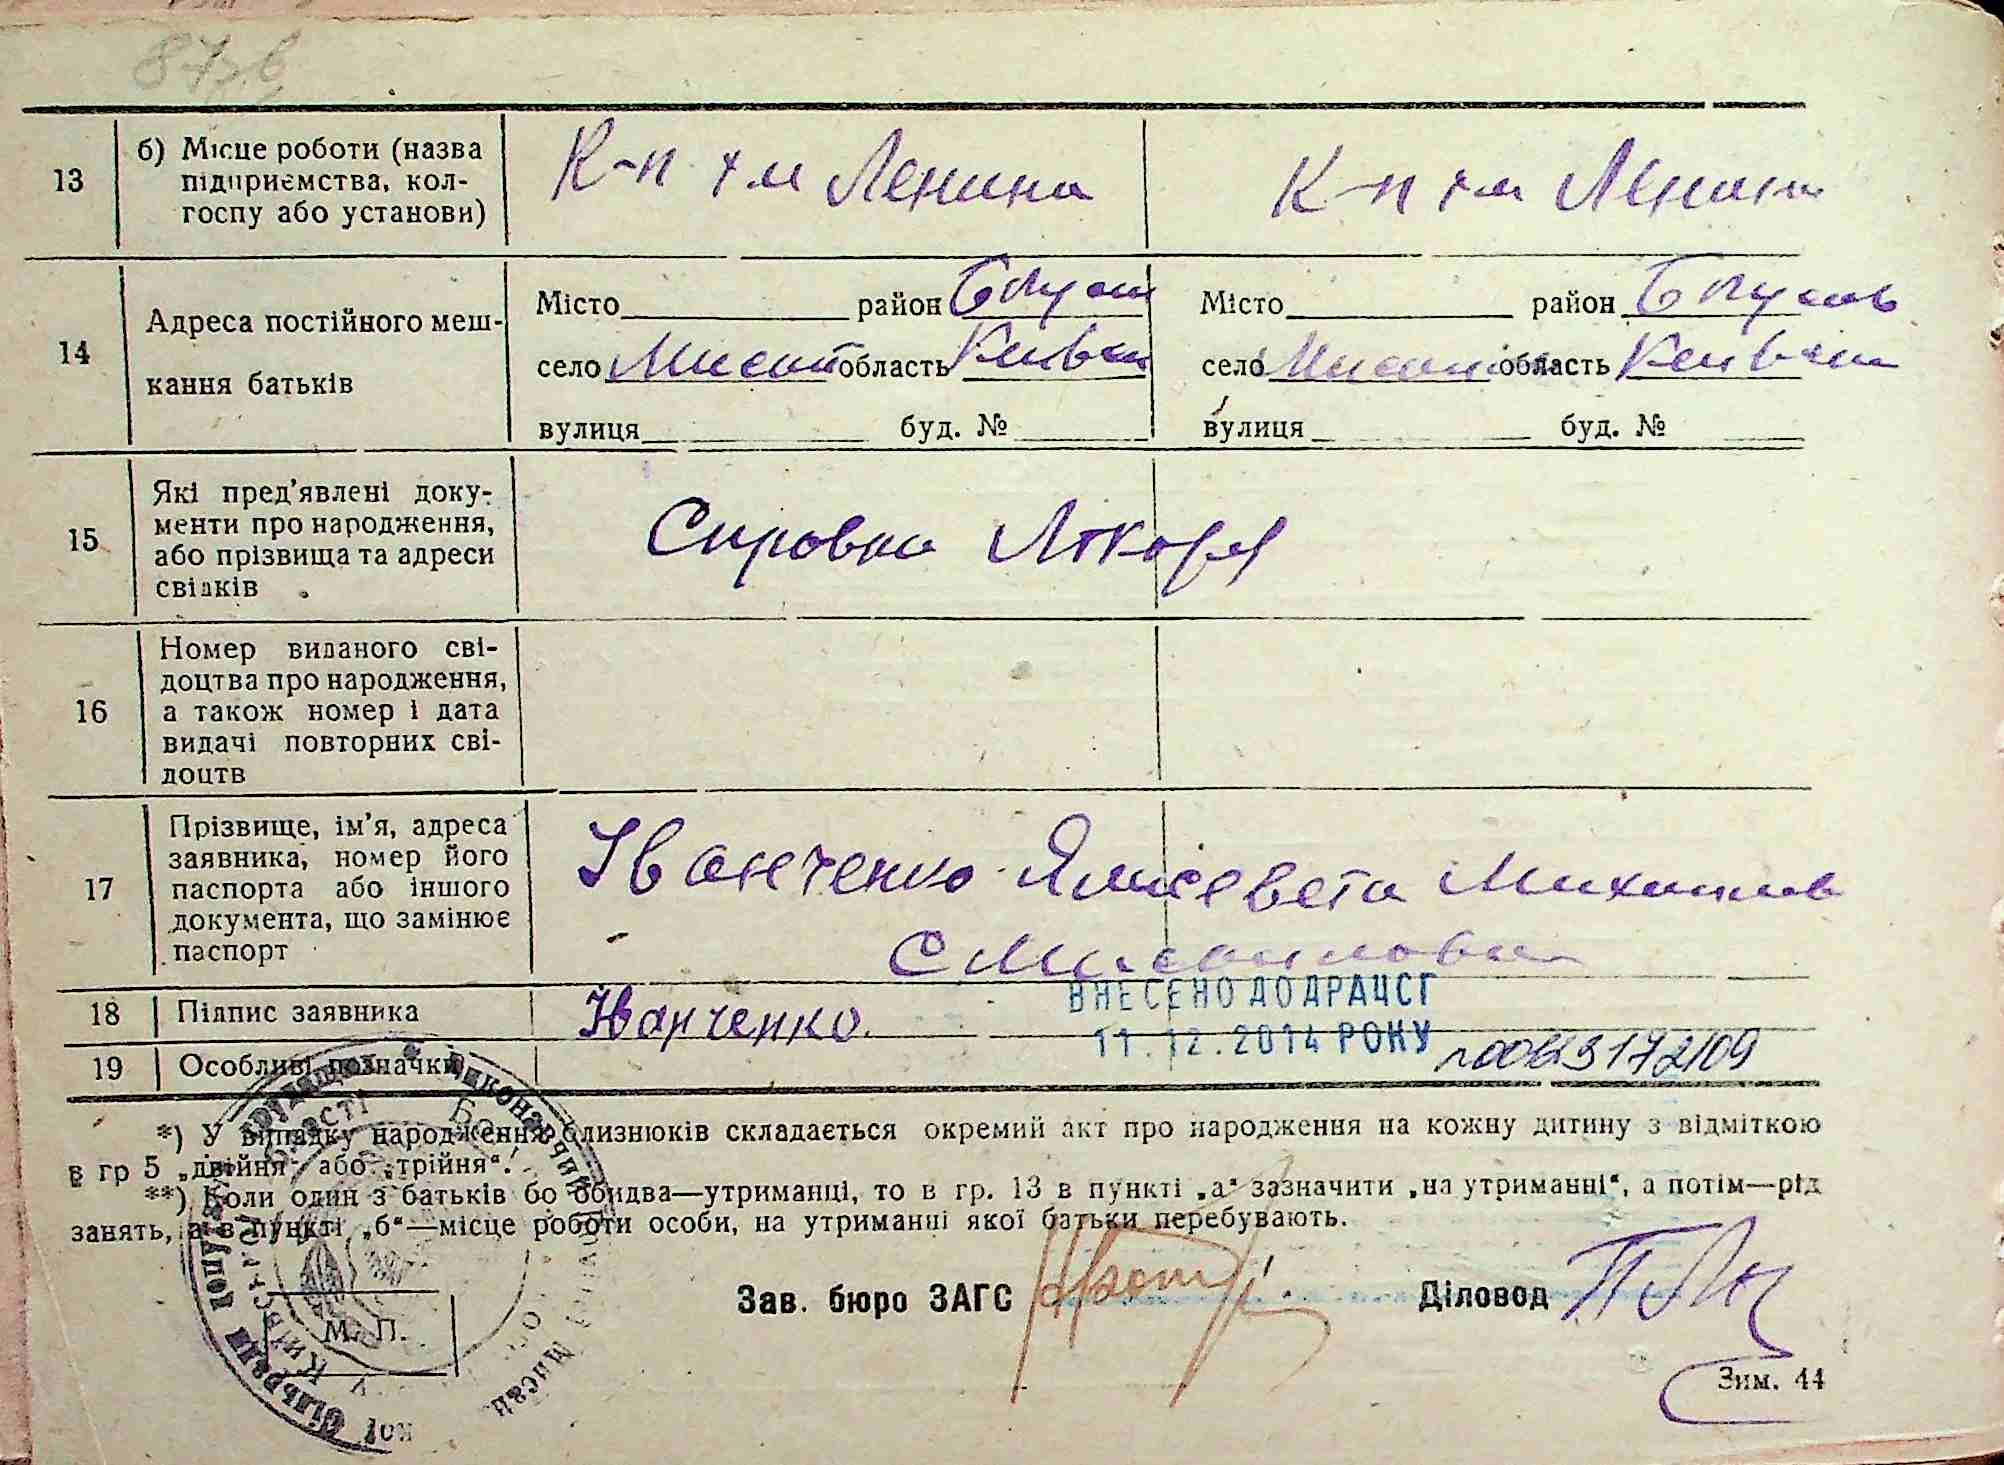 13
б) Місце роботи (назва
підприємства, кол-
госпу або установи)
К-п і м Ленина
К-п і м Ленина
14
Адреса постійного меш-
кання батьків
Місто район Богусл
село область Київськ
вулиця буд. №
Місто район Богуслав
село область Київськ
вулиця буд. №
15
Які пред'явлені доку-
менти про народження,
або прізвища та адреси
свідків
Справка Лікоря
16
Номер виданого сві-
доцтва про народження,
а також номер і дата
видачі повторних сві-
доцтв
17
Прізвище, ім'я, адреса
заявника, номер його
паспорта або іншого
документа, що замінює
паспорт
Іванченко Ялисевета Михаилов
С Мисаиловка
18 Підпис заявника
Иванченко.
ВНЕСЕНО ДО ДРАЦСГ
11.12.2014 РОКУ
19 Особливі позначки
*) У випадку народження близнюків складається окремий акт про народження на кожну дитину з відміткою
в гр 5 „двійня“ або „трійня“.
**) Коли один з батьків бо обидва—утриманці, то в гр. 13 в пункті „а“ зазначити „на утриманні“, а потім—рід
занять, а в пункті „б“—місце роботи особи, на утриманні якої батьки перебувають.
Зав. бюро ЗАГС
Діловод
М. П.
Зим. 44